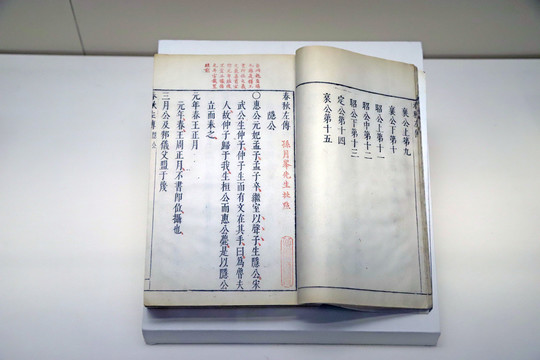 襄公上第九
襄公下第十
昭公上第十一
昭公中第十二
昭公下第十三
定公第十四
哀公第十五
春秋左傳
孫月峯先生批點
隱公
○惠公元妃孟子孟子卒繼室以聲子生隱公宋
武公生仲子仲子生而有文在其手曰為魯夫
人故仲子歸于我生桓公而惠公薨是以隱公
立而奉之
元年春王正月
元年春王周正月不書即位攝也
三月公及邾儀父盟于蔑
春秋左傳 隱公